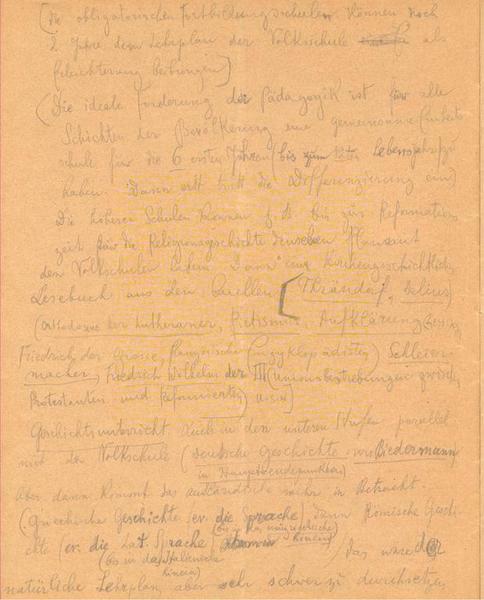 (die obligatorischen Fortbildungsschulen können noch
2 Jahre dem Lehrplan der Volksschule als
Erleichterung beibringen)
(Die ideale Forderung der Pädagogik ist für alle
Schichten der Bevölkerung eine gemeinsame Einheits
schule für die 6 ersten Jahren (bis zum 12ten Lebensjahr) zu
haben. Dann erst tritt die Differenzierung ein)
Die höheren Schulen können f. d. bis zur Reformations
zeit für die Religionsgeschichte denselben
den Volksschulen haben. Dann ein Kirchengeschichtlich
Lesebuch aus den Quellen [Thrändorf,
(Orthodoxie der Lutheraner, Pietismus, Aufklärung
Friedrich der Grosse, französische Enzyklopädisten) Schleier
macher, Friedrich Wilhelm der III (Unionsbestrebungen zwisch.
Protestanten und Reformierten) u.s.w
Geschichtsunterricht. Auch in den unteren Stufen parallel
mit der Volksschule (deutsche Geschichte wie Biedermann
in
Aber dann kommt das ausländische mehr in Betracht
(Griechische Geschichte (ev. die Sprache) dann Römische Gesch
ichte (ev. die Lat. Sprache
das wäre der
natürliche Lehrplan, aber sehr schwer zu durchsetzen